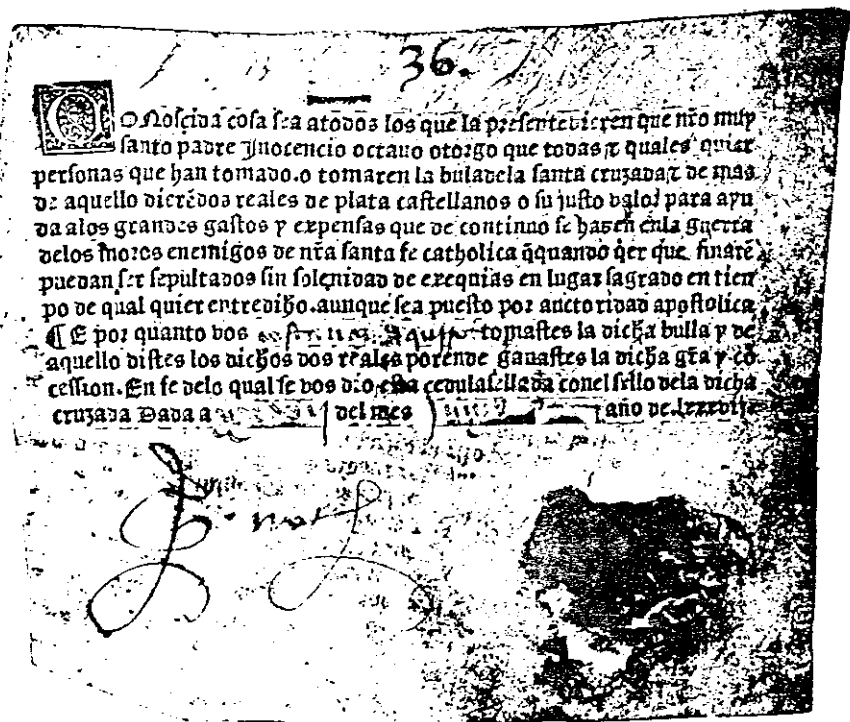 36.
COnoſcida coſa ſea atodos los que la preſente vieren que nr̃o muy
ſanto padre Jnocencio octauo otorgo que todas ⁊ quales quier
perſonas que han tomado.o tomaren la bula dela ſanta cruzada ⁊ de mas
de aquello dierẽ dos reales de plata caſtellanos o ſu juſto valor para ayu
da alos grandes gaſtos y expenſas que de continuo ſe hazen enla guerra
delos moros enemigos de nr̃a ſanta fe catholica q̃ quando q̃er que finarẽ
puedan ſer ſepultados ſin ſolenidad de exequias en lugar ſagrado en tien
po de qual quier entredicho.aunque ſea pueſto por auctoridad apoſtolica
¶ E por quanto vos tomaſtes la dicha bulla y de
aquello diſtes los dichos dos reales porende ganaſtes la dicha gr̃a y cõ
ceſſion.En fe delo qual ſe vos dio eſta cedula ſellada conel ſello dela dicha
cruzada Dada a del mes año de.lxxxvij